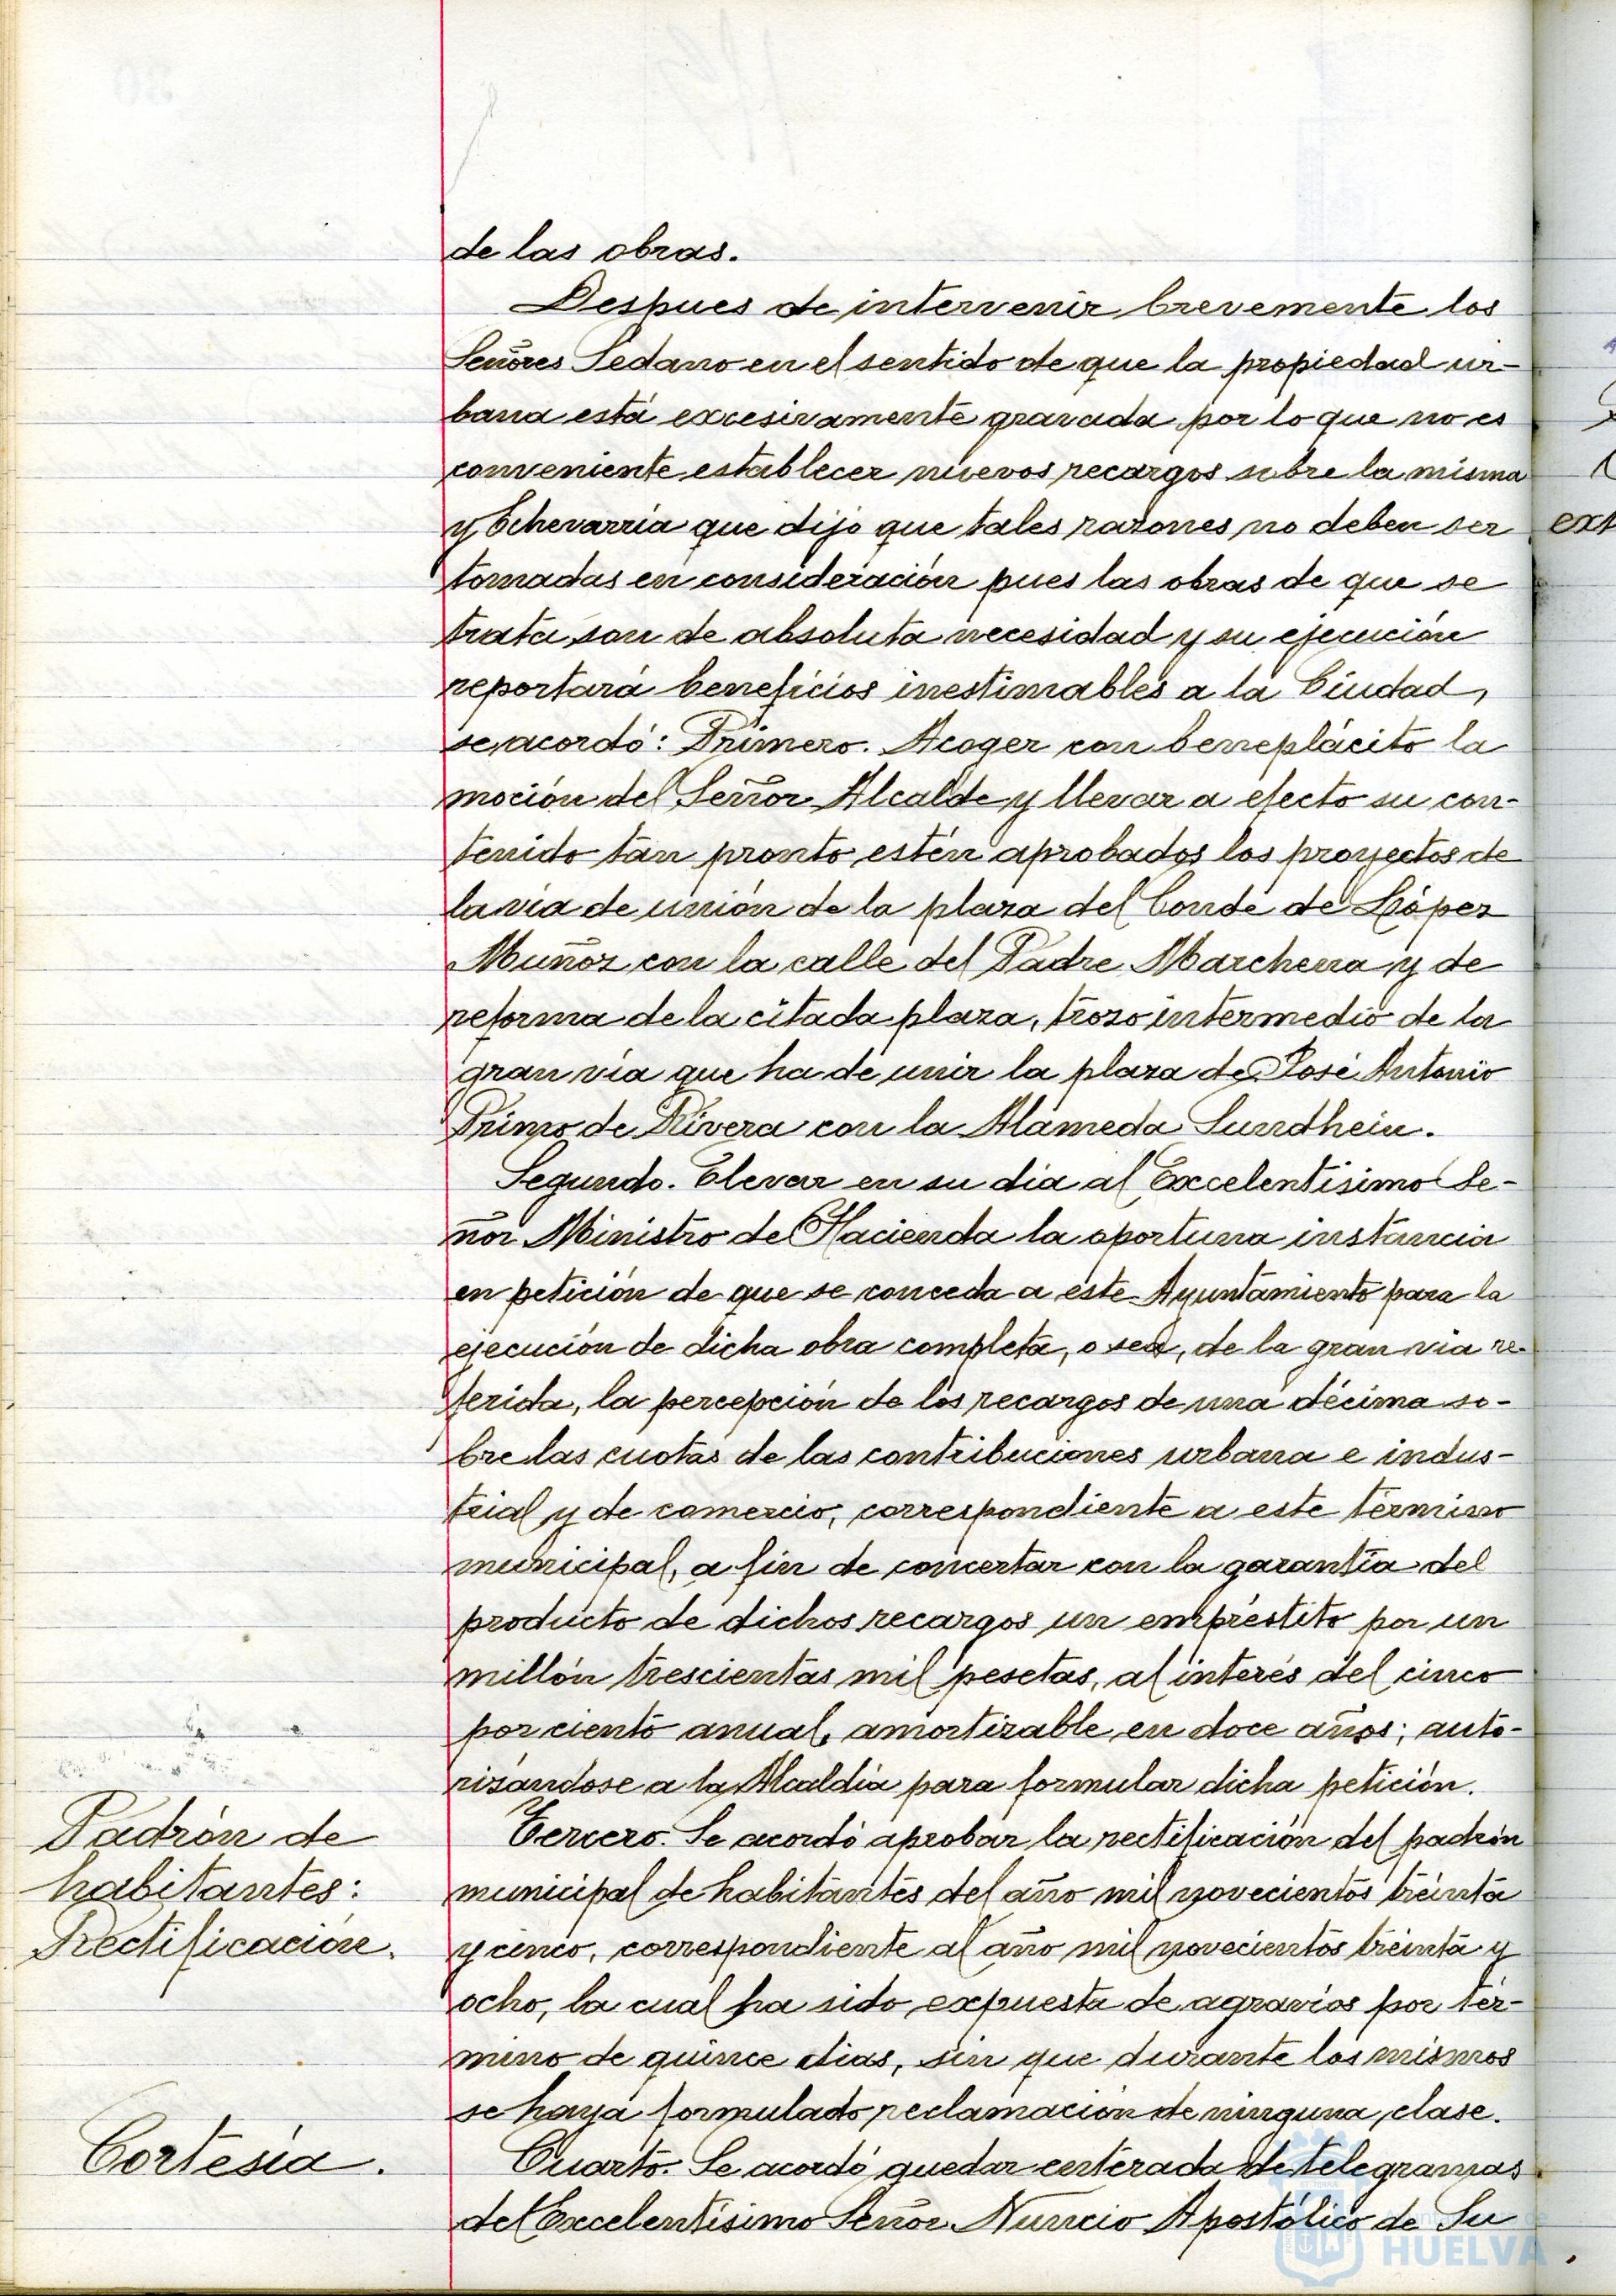 de las obras.
Despues de intervenir brevemente los
Señores Sedano en el sentido de que la propiedad ur-
bana está excesivamente gravada por lo que no es
conveniente establecer nuevos recargos sobre la misma
y Echevarría que dijo que tales razones no deben ser
tomadas en consideración pues las obras de que se
trata son de absoluta necesidad y su ejecución
reportará beneficios inestimables a la Ciudad,
se acordó: Primero. Acoger con beneplácito la
moción del Señor Alcalde y llevar a efecto su con-
tenido tan pronto estén aprobados los proyectos de
la vía de unión de la plaza del Conde de López
Muñoz con la calle del Padre Marchena y de
reforma de la citada plaza, trozo intermedio de la
gran vía que ha de unir la plaza de José Antonio
Primo de Rivera con la Alameda Sundhein.
Segundo. Elevar en su día al Excelentísimo Se-
ñor Ministro de Hacienda la oportuna instancia
en petición de que se conceda a este Ayuntamiento para la
ejecución de dicha obra completa, o sea, de la gran vía re-
ferida, la percepción de los recargos de una décima so-
bre las cuotas de las contribuciones urbana e indus-
trial y de comercio, correspondiente a este término
municipal, a fin de concertar con la garantía del
producto de dichos recargos un empréstito por un
millón trescientas mil pesetas, al interés del cinco
por ciento anual, amortizable en doce años; auto-
rizándose a la Alcaldía para formular dicha petición.
Padrón de
habitantes:
Rectificación.
Tercero. Se acordó aprobar la rectificación del padrón
municipal de habitantes del año mil novecientos treinta
y cinco, correspondiente al año mil novecientos treinta y
ocho, la cual ha sido expuesta de agravios por tér-
mino de quince dias, sin que durante los mismos
se haya formulado reclamación de ninguna clase.
Cortesía.
Cuarto. Se acordó quedar enterada de telegramas
del Excelentísimo Señor Nuncio Apostólico de Su
ext
HUELVA